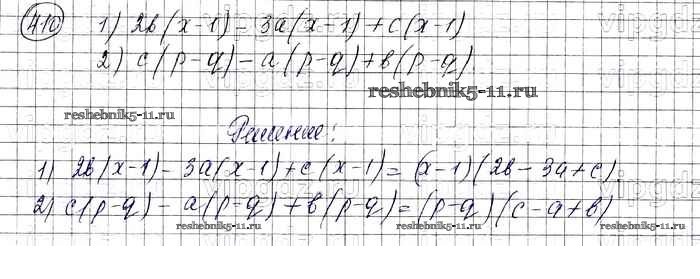 410 1) 2в(x-1) - 3a(x-1)+c(x-1)
2) c(p-q)-a(p-q)+в(p-q)
reshebnik5-11.ru
reshebnik5-11.ru
Решение:
1) 2в(x-1)-3a(x-1)+c(x-1)=(x-1)(2в-3a+c)
2) c(p-q)-a(p-q)+в(p-q)=(p-q)(c-a+в)
reshebnik5-11.ru
reshebnik5-11.ru